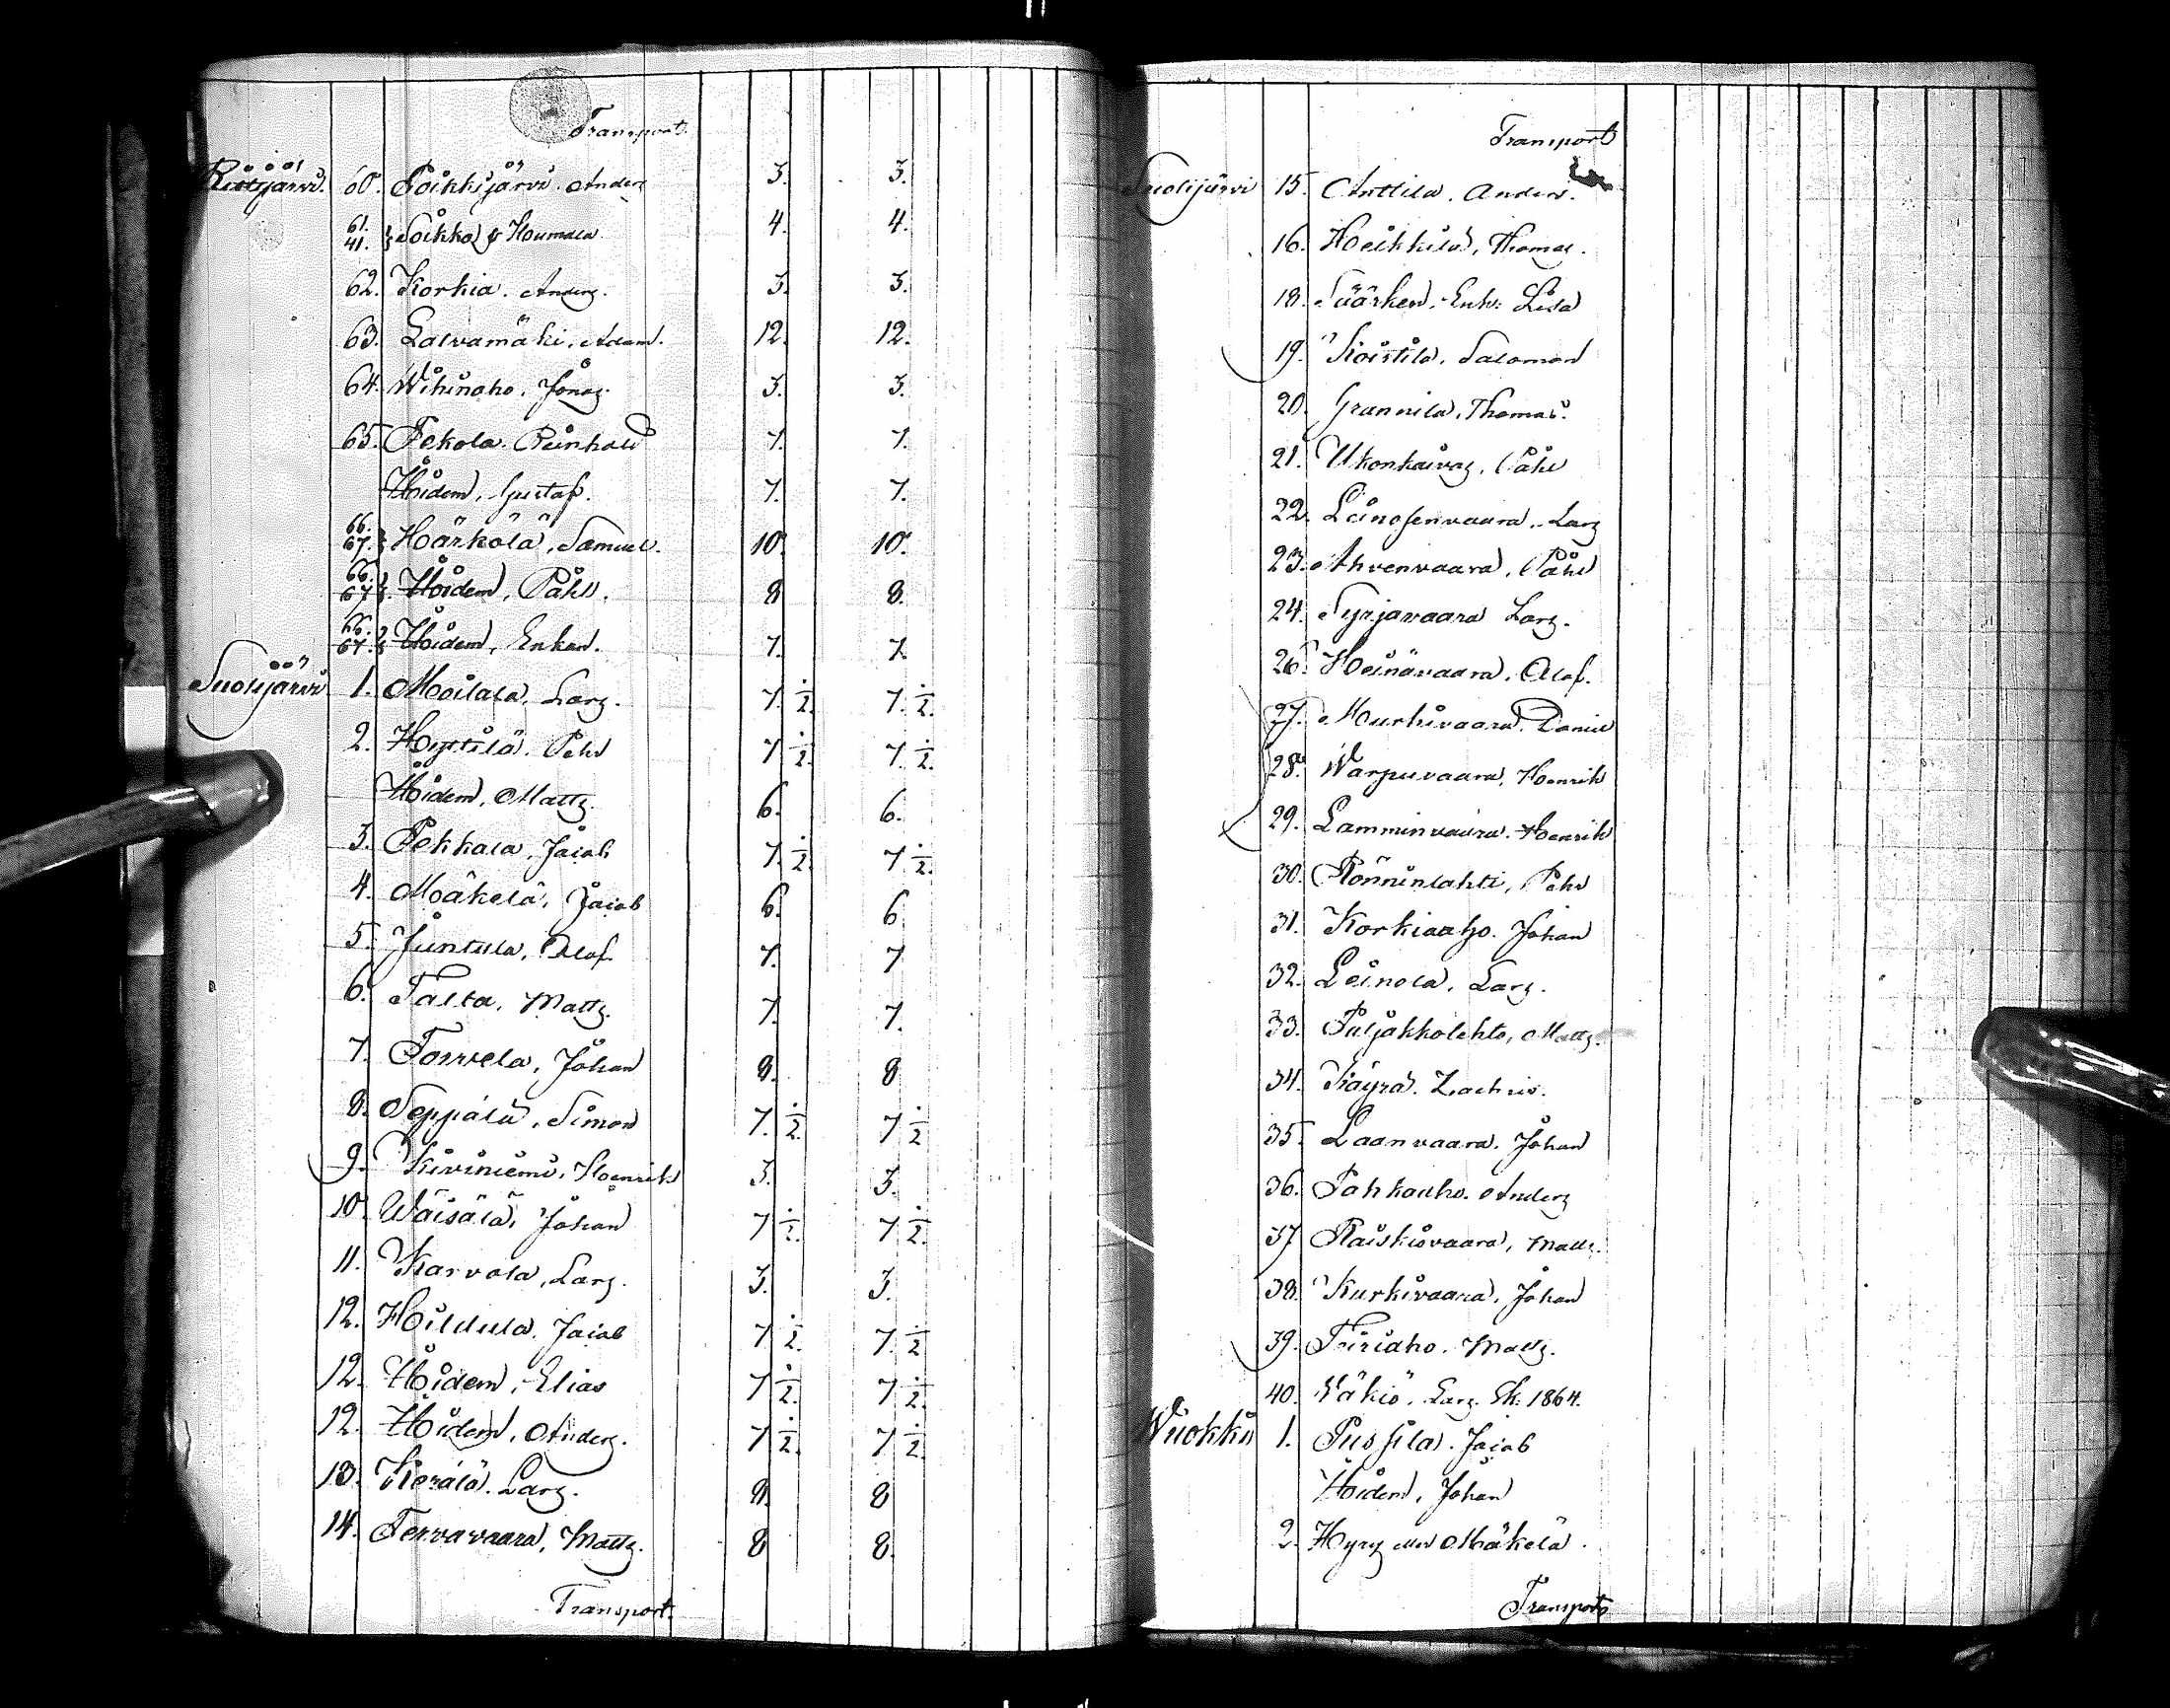 Transport
Ristijärvi. 60. Poikkijärvi. Anders 3. 3.
61. 41. Toikko & Houmala 4. 4.
62. Korkia. Anders. 3. 3.
63. Latvamäki, Adam. 12. 12.
64. Wihinaho. Jonas. 3. 3.
65. Pekola. Reinhold 7. 7.
Idem, Gustaf. 7. 7.
66. 67. Härkölä, Samuel. 10. 10.
66. 67. Idem, Påhl. 8 8.
66. 67. Idem, Enkan. 7. 7.
Suolijärvi 1. Moilala, Lars. 7. 1/2. 7. 1/2.
2. Hyttilä. Pehr 7 1/2. 7. 1/2.
Idem, Matts. 6. 6.
3. Pekkala, Jacob 7. 1/2. 7 1/2.
4. Mäkelä, Jacob 6. 6
5. Juntula, Olof. 7. 7
6. Talta, Matts. 7. 7.
7. Torvela, Johan 8. 8
8. Seppälä, Simon 7. 1/2. 7 1/2
9. Kiviniemi, Henrik 3. 3.
10. Wäisälä, Johan 7 1/2. 7 1/2.
11. Karvola, Lars. 3. 3.
12. Hildula. Jacob 7 1/2. 7. 1/2
12. Idem, Elias 7 1/2. 7 1/2.
12. Idem, Anders. 7 1/2. 7 1/2
13. Kerälä. Lars. 8. 8
14. Tervavaara, Matts. 8 8.
Transport.
Transport
Suolijärvi 15. Anttila. Anders.
16. Heikkilä, Thomas.
18. Enk: Lisa
19. Koistila, Salomon
20. Grannila, Thomas.
21. Ukonkaivos, Påhl
22. Leinosenvaara, Lars
23. Ahvenvaara, Påhl
24. Syrjavaara Lars.
26. Heinävaara, Olof.
27. Murhivaara. Daniel
28. Warpuvaara, Henrik
29. Lamminvaara. Henrik
30. Rönninlahti, Pehr
31. Korkiaaho. Johan
32. Leinola, Lars.
33. Puljakkolehto, Matts.
34. Käyrä. Zachris.
35. Laanvaara. Johan
36. Pahkaaho. Anders
37 Raiskiovaara, Matts.
38. Kurkivaara, Johan
39. Piiriaho. Matts.
40. Näkiö. Lars. Sk: 1864.
Wuokki 1. Pussila. Jacob
Idem, Johan
2. Hyry eller Mäkelä.
Transport